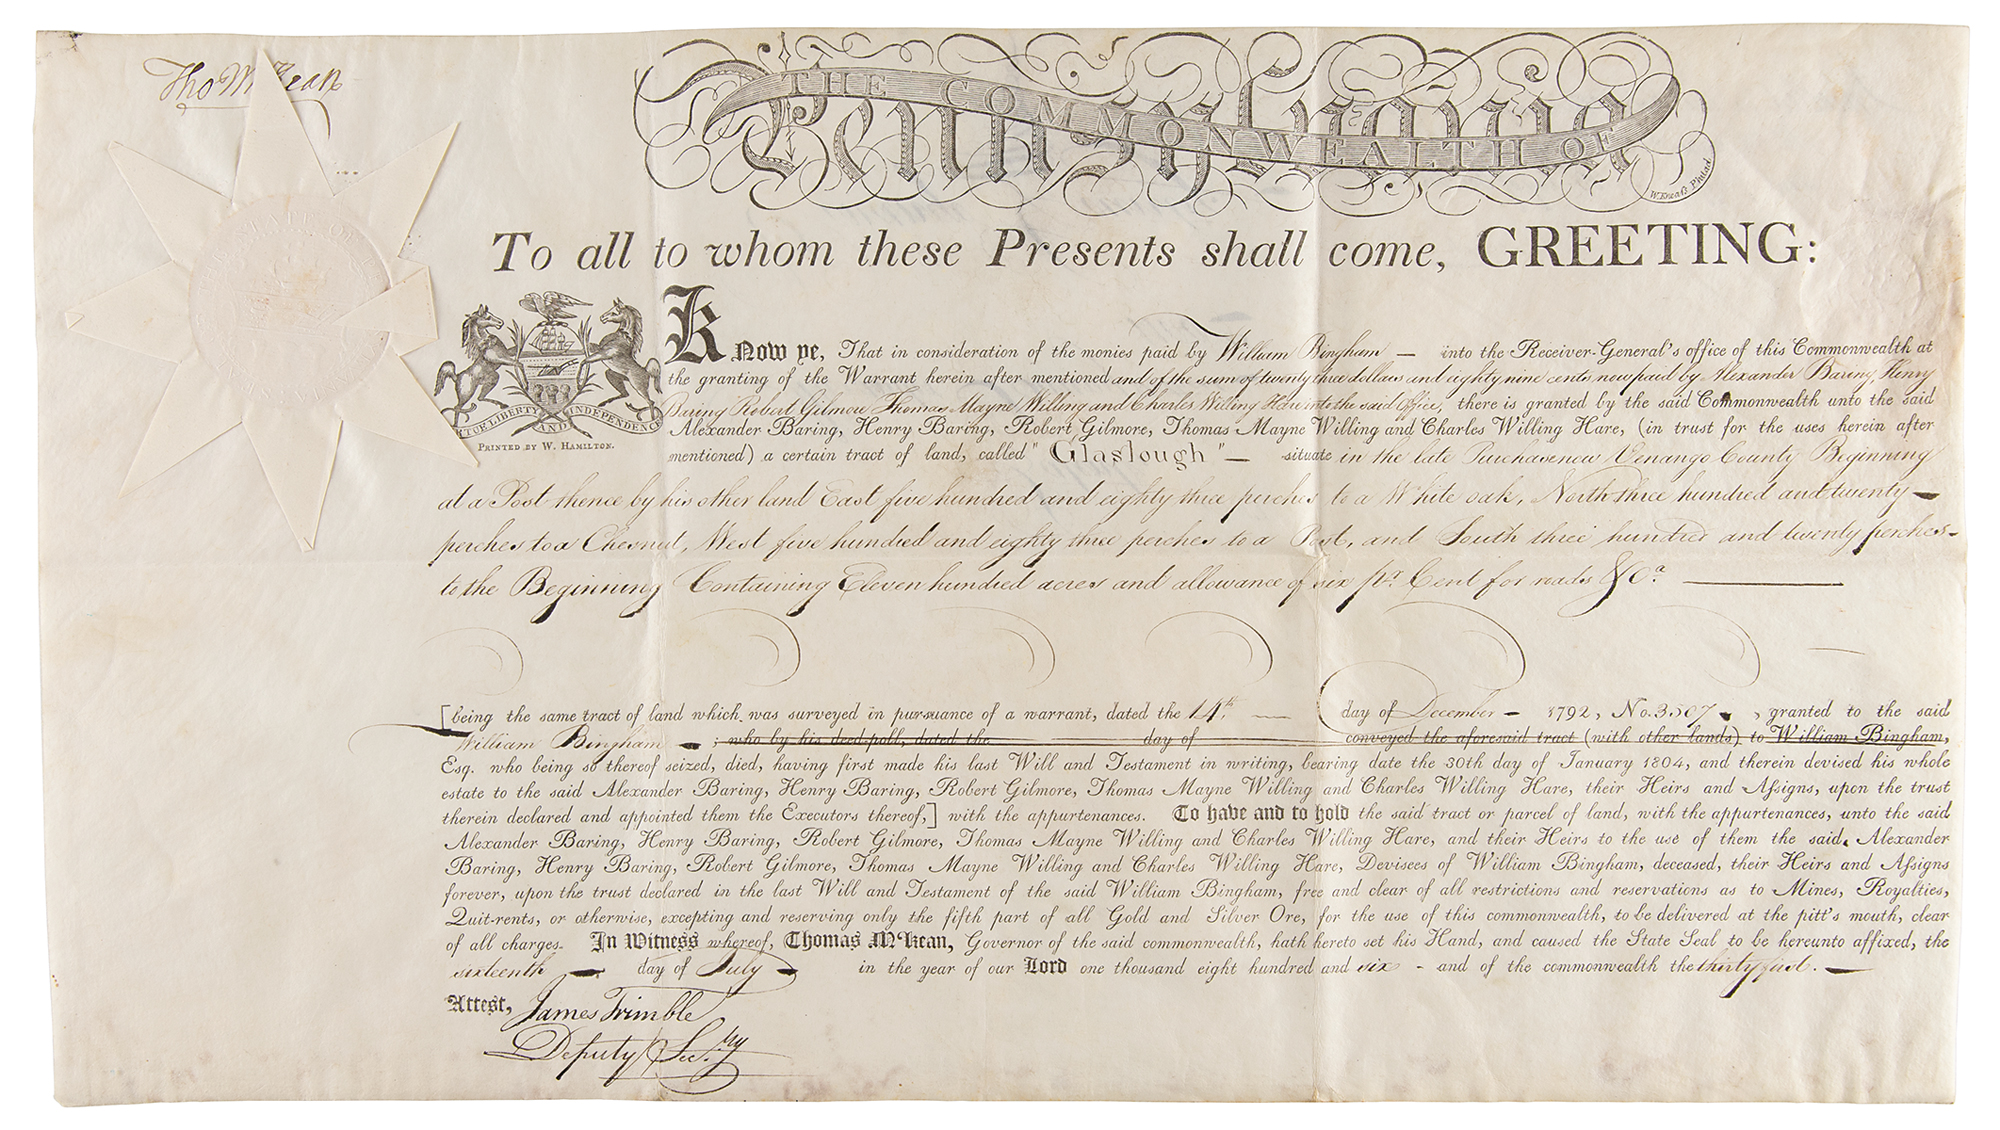 Tho M:Kean
THE COMMONWEALTH OF
Pennsylvania
W. Kneaß Philad.
To all to whom these Presents shall come, GREETING:
VIRTUE LIBERTY AND INDEPENDENCE
PRINTED BY W. HAMILTON.
Know ye, That in consideration of the monies paid by William Bingham — into the Receiver-General's office of this Commonwealth at
the granting of the Warrant herein after mentioned and of the sum of twenty three dollars and eighty nine cents now paid by Alexander Baring, Henry
Baring Robert Gilmore Thomas Mayne Willing and Charles Willing Hare into the said Office, there is granted by the said Commonwealth unto the said
Alexander Baring, Henry Baring, Robert Gilmore, Thomas Mayne Willing and Charles Willing Hare, (in trust for the uses herein after
mentioned) a certain tract of land, called "Glaslough" — situate in the late Purchase now Venango County Beginning
at a Post thence by his other land East five hundred and eighty three perches to a White oak, North three hundred and twenty —
perches to a Chesnut, West five hundred and eighty three perches to a Post, and South three hundred and twenty perches —
to the Beginning Containing Eleven hundred acres and allowance of six pr. Cent for roads &Ca. —
[being the same tract of land which was surveyed in pursuance of a warrant, dated the 14th — day of December — 1792, No. 3507 —, granted to the said
William Bingham — ; who by his deed-poll, dated the day of conveyed the aforesaid tract (with other lands) to William Bingham,
Esq. who being so thereof seized, died, having first made his last Will and Testament in writing, bearing date the 30th day of January 1804, and therein devised his whole
estate to the said Alexander Baring, Henry Baring, Robert Gilmore, Thomas Mayne Willing and Charles Willing Hare, their Heirs and Aſsigns, upon the trust
therein declared and appointed them the Executors thereof,] with the appurtenances. To have and to hold the said tract or parcel of land, with the appurtenances, unto the said
Alexander Baring, Henry Baring, Robert Gilmore, Thomas Mayne Willing and Charles Willing Hare, and their Heirs to the use of them the said, Alexander
Baring, Henry Baring, Robert Gilmore, Thomas Mayne Willing and Charles Willing Hare, Devisees of William Bingham, deceased, their Heirs and Aſsigns
forever, upon the trust declared in the last Will and Testament of the said William Bingham, free and clear of all restrictions and reservations as to Mines, Royalties,
Quit-rents, or otherwise, excepting and reserving only the fifth part of all Gold and Silver Ore, for the use of this commonwealth, to be delivered at the pitt's mouth, clear
of all charges. In Witness whereof, Thomas M'Kean, Governor of the said commonwealth, hath hereto set his Hand, and caused the State Seal to be hereunto affixed, the
sixteenth — day of July — in the year of our Lord one thousand eight hundred and six - and of the commonwealth the thirty first. —
Attest, James Trimble
Deputy Secry